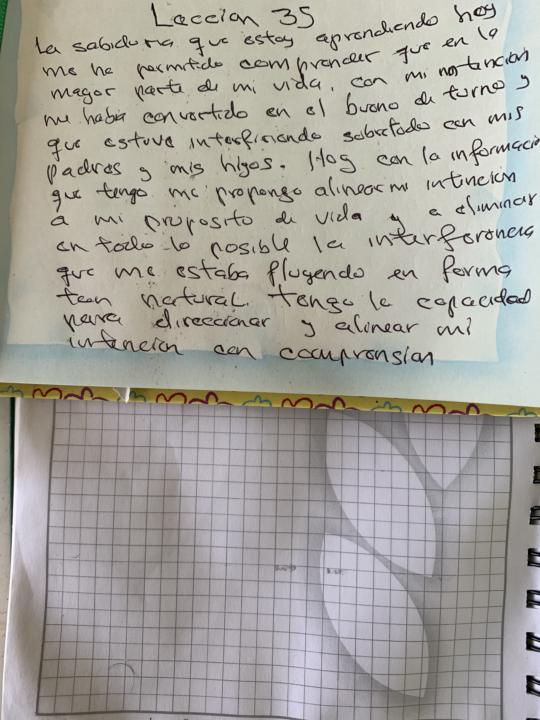 Leccion 35
La sabiduria que estoy aprendiendo hoy
me ha permitido comprender que en la
mayor parte de mi vida, con mi no tencion
me habia convertido en el bueno de turno y
que estuve interfiriendo sobretodo con mis
padres y mis hijos. Hoy con la informacio
que tengo me propongo alinear mi intincion
a mi proposito de vida y a eliminar
en todo lo posible la interferencia
que me estaba fluyendo en forma
tan natural. tengo la capacidad
para direccionar y alinear mi
intencion con comprension